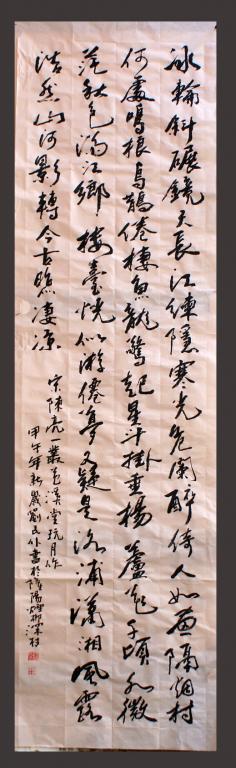 冰輪斜碾鏡天長江練隱寒光危闌醉倚人如畫隔烟村
何處鳴榔烏鵲倦棲魚龍驚起星斗掛垂楊蘆花千頃水微
茫秋色滿江鄉樓臺恍似游僊夢又疑是洛浦瀟湘風露
浩然山河影轉今古照凄凉
宋陳亮一叢花溪堂玩月作
甲午年新歲劉